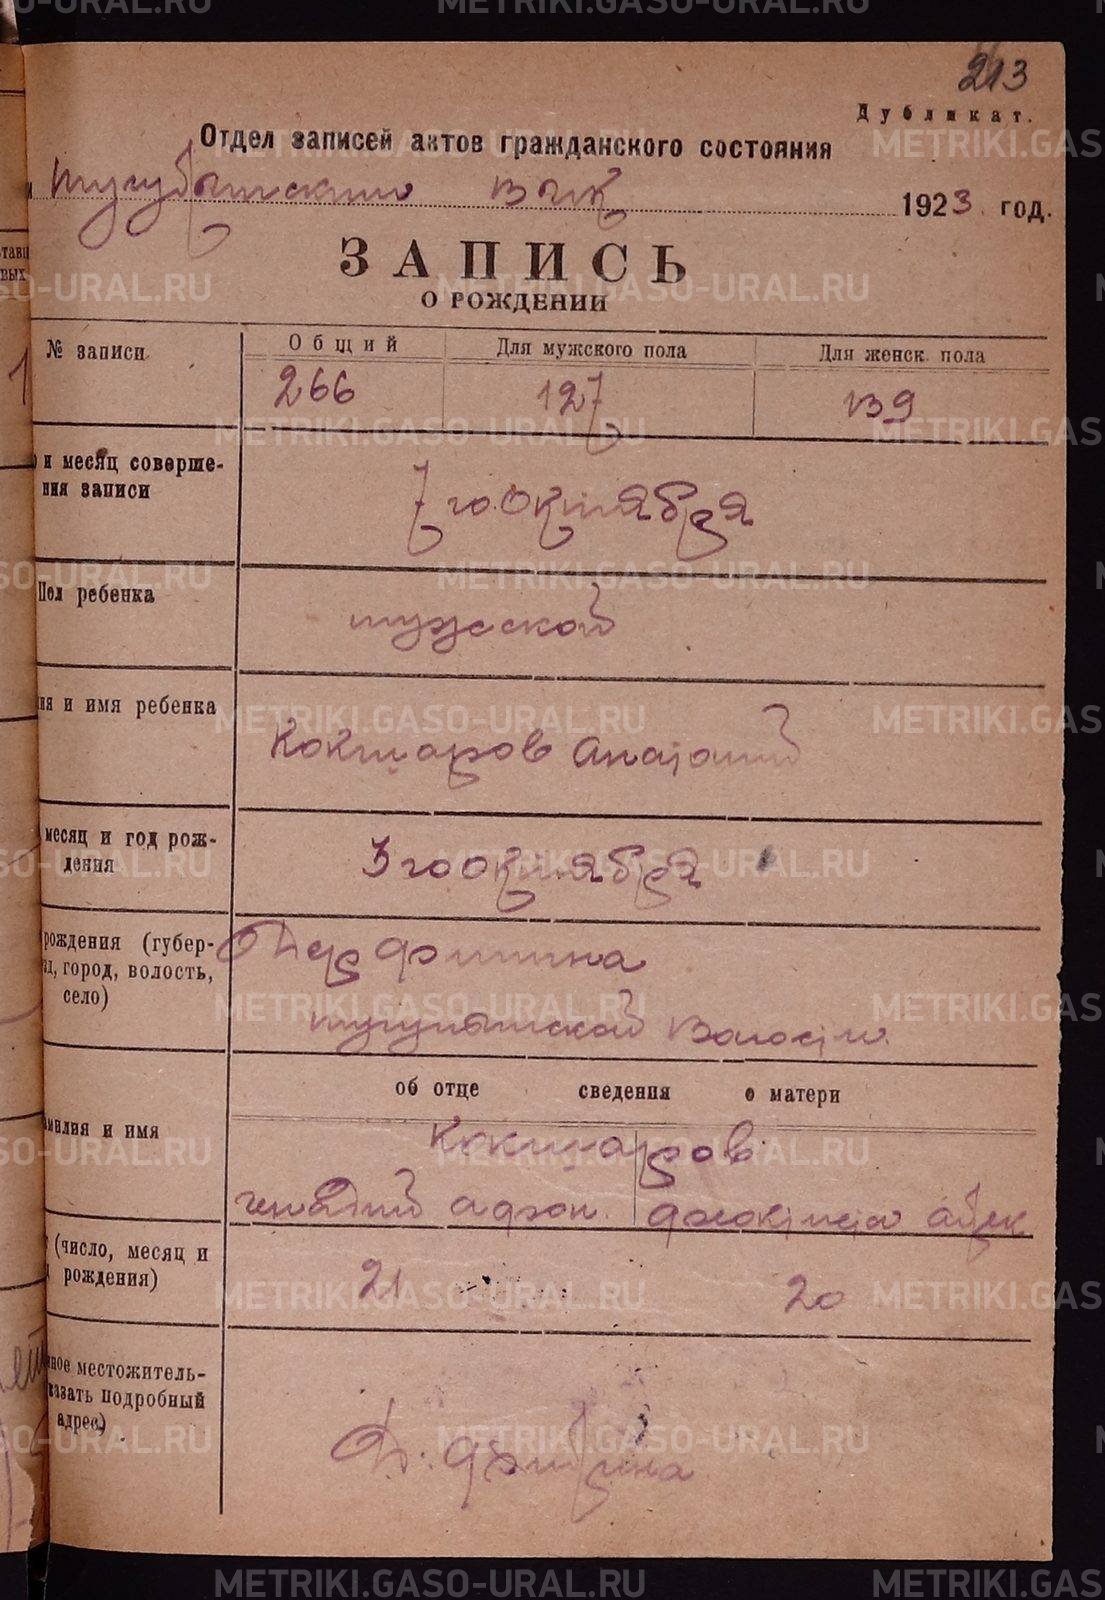 METRIKI.GASO-URAL.RU
213
Дубликат.
Отдел записей актов гражданского состояния
вик 1923 год.
ЗАПИСЬ
О РОЖДЕНИИ
№ записи
Общий
Для мужского пола
Для женск. пола
266
127
139
и месяц соверше-
ния записи
7 го октября
Пол ребенка
мужской
ия и имя ребенка
Кокшаров Анатолий
месяц и год рож-
дения
3 го октября
рождения (губер-
зд, город, волость,
село)
волости.
об отце сведения о матери
амилия и имя
Кокшаров
генадий афон.
(число, месяц и
рождения)
21
20
нное местожитель-
казать подробный
адрес)